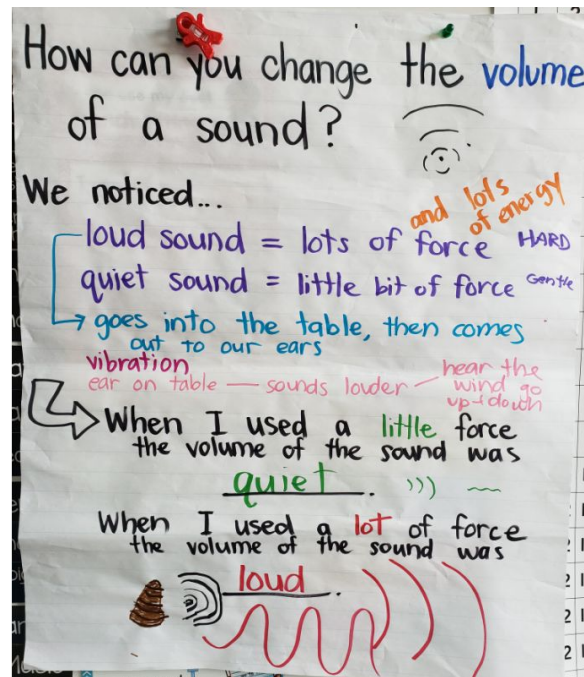 How can you change the volume
of a sound?
We noticed...
and lots
of energy
loud sound = lots of force HARD
quiet sound = little bit of force Gentle
goes into the table, then comes
out to our ears
vibration
ear on table — sounds louder — hear the
wind go
up + down
When I used a little force
the volume of the sound was
quiet.
When I used a lot of force
the volume of the sound was
loud.